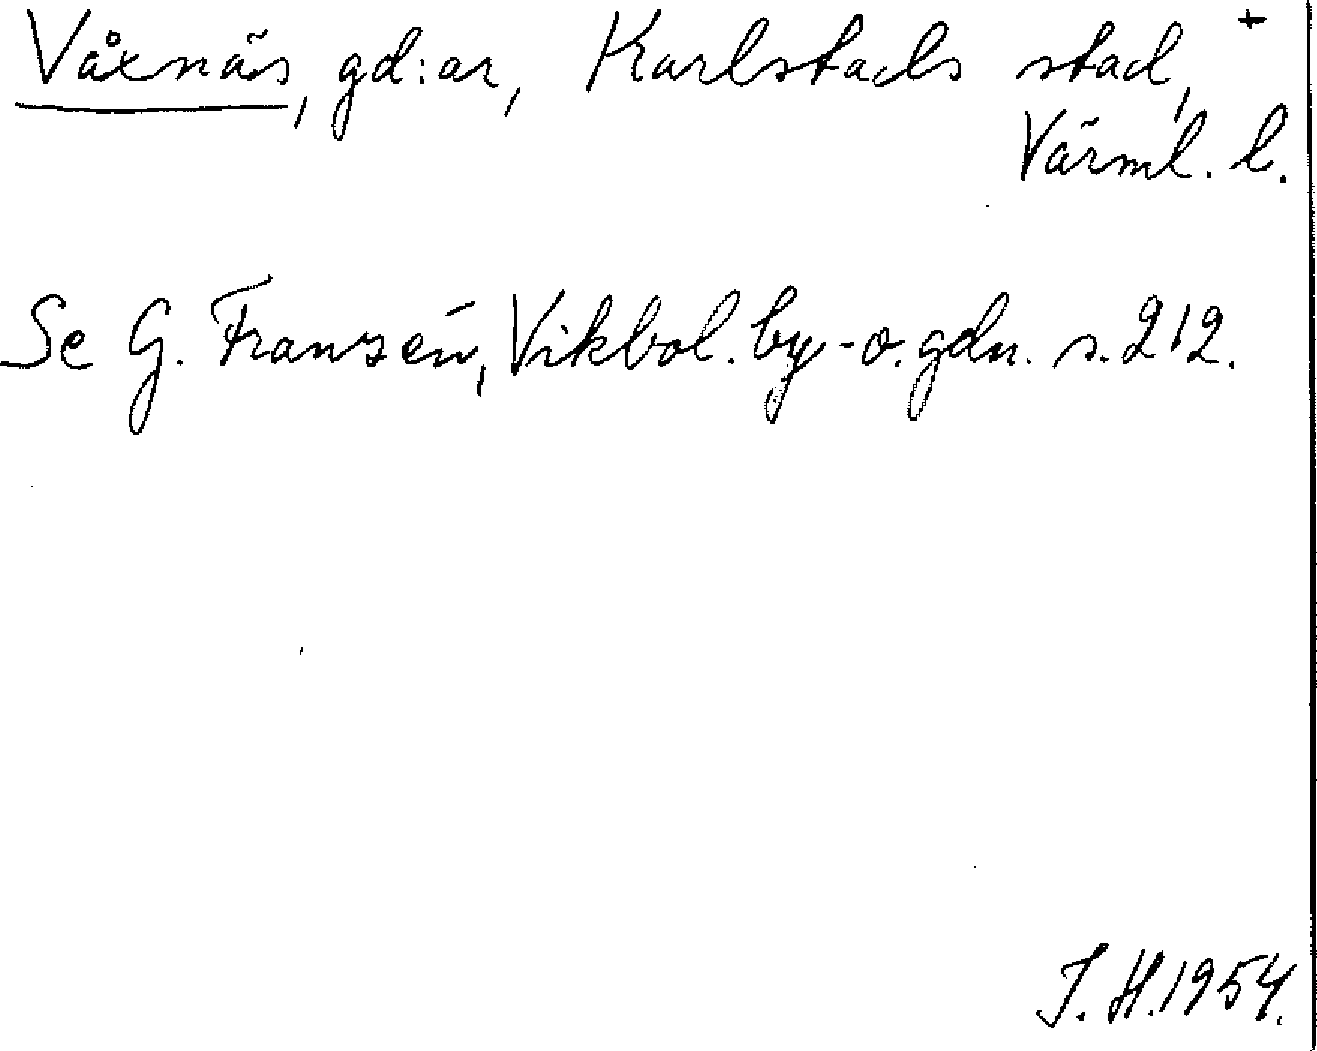 Våxnäs, gd:ar, Karlstads stad, +
Värml. l.
Se G. Franzén, Vikbol. by- o. gdn. s. 212.
J. H. 1954.